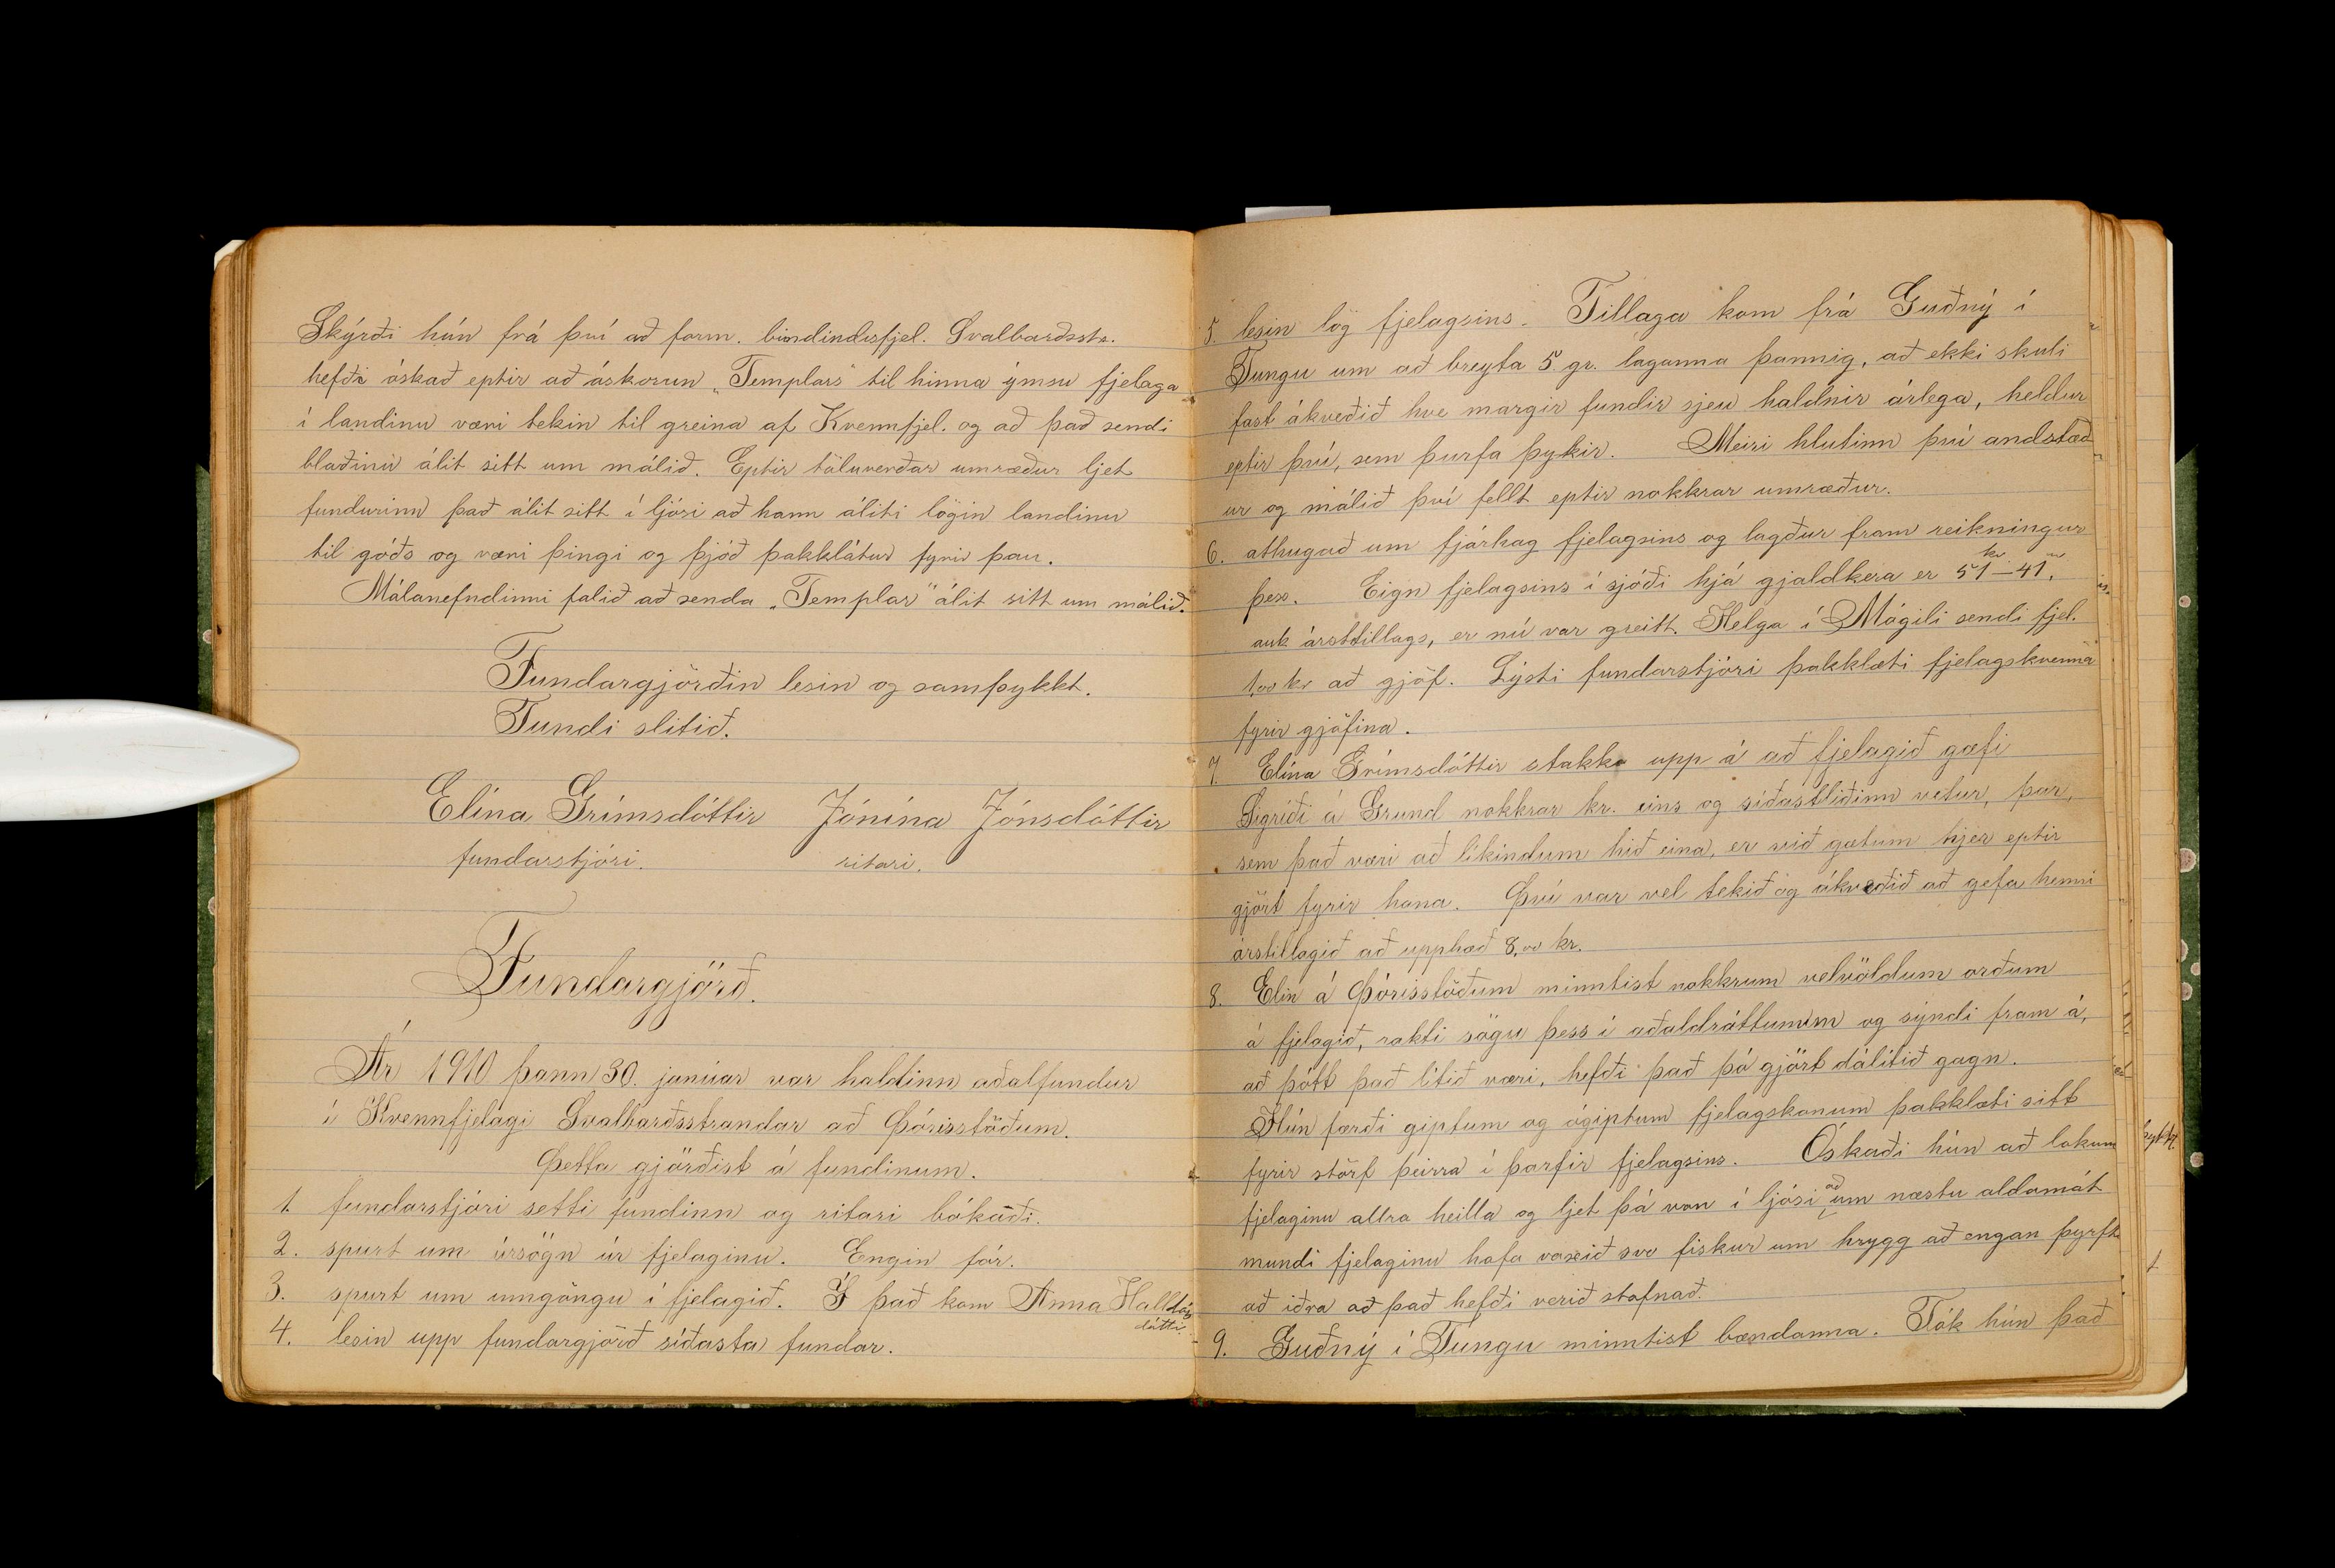 Skýrði hún frá því að form. bindindisfjel. Svalbarðsstr.
hefði óskað eptir að áskorun „Templars" til hinna ýmsu fjelaga
í landinu væri tekin til greina af Kvennfjel. og að það sendi
blaðinu álit sitt um málið. Eptir töluverðar umræður ljet
fundurinn það álit sitt í ljósi að hann áliti lögin landinu
til góðs og væri þingi og þjóð þakklátur fyrir þau.
Málanefndinni falið að senda „Templar" álit sitt um málið.
Fundargjörðin lesin og samþykkt.
Fundi slitið.
Elína Grímsdóttir Jónína Jónsdóttir
fundarstjóri. ritari.
Fundargjörð.
Ár 1910 þann 30. janúar var haldinn aðalfundur
í Kvennfjelagi Svalbarðsstrandar að Þórisstöðum.
Þetta gjörðist á fundinum.
1. fundarstjóri setti fundinn og ritari bókaði.
2. spurt um úrsögn úr fjelaginu. Engin fór.
3. spurt um inngöngu í fjelagið. Í það kom Anna Halldórs
dóttir.
4. lesin upp fundargjörð síðasta fundar.
5. lesin lög fjelagsins. Tillaga kom frá Guðný í
Tungu um að breyta 5. gr. laganna þannig, að ekki skuli
fast ákveðið hve margir fundir sjeu haldnir árlega, heldur
eptir því, sem þurfa þykir. Meiri hlutinn því andstæð
ur og málið því fellt eptir nokkrar umræður.
6. athugað um fjárhag fjelagsins og lagður fram reikningur
þess. Eign fjelagsins í sjóði hjá gjaldkera er 51 kr – 41,
auk árstillags, er nú var greitt. Helga í Mógili sendi fjel.
1,00 kr að gjöf. Lýsti fundarstjóri þakklæti fjelagskvenna
fyrir gjöfina.
7. Elína Grímsdóttir stakk upp á að fjelagið gæfi
Sigríði á Grund nokkrar kr. eins og síðastliðinn vetur, þar,
sem það væri að líkindum hið eina, er við gætum hjer eptir
gjört fyrir hana. Því var vel tekið og ákveðið að gefa henni
árstillagið að upphæð 8,00 kr.
8. Elín á Þórisstöðum minntist nokkrum velvöldum orðum
á fjelagið, rakti sögu þess í aðaldráttunum og sýndi fram á,
að þótt það lítið væri, hefði það þó gjört dálítið gagn.
Hún færði giptum og ógiptum fjelagskonum þakklæti sitt
fyrir störf þeirra í þarfir fjelagsins. Óskaði hún að lokum
fjelaginu allra heilla og ljet þá von í ljósi að um næstu aldamót
mundi fjelaginu hafa vaxið svo fiskur um hrygg að engan þyrfti
að iðra að það hefði verið stofnað.
9. Guðný í Tungu minntist bændanna. Tók hún það